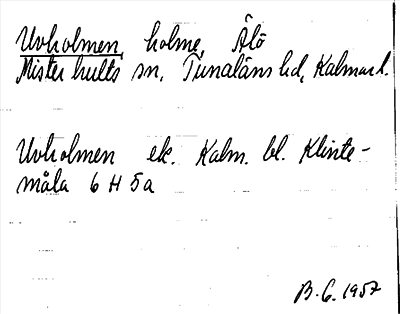 Uvholmen, holme, Älö
Misterhults sn, Tunaläns hd, Kalmar l.
Uvholmen ek. Kalm. bl. Klinte-
måla 6 H 5a
B. G. 1957